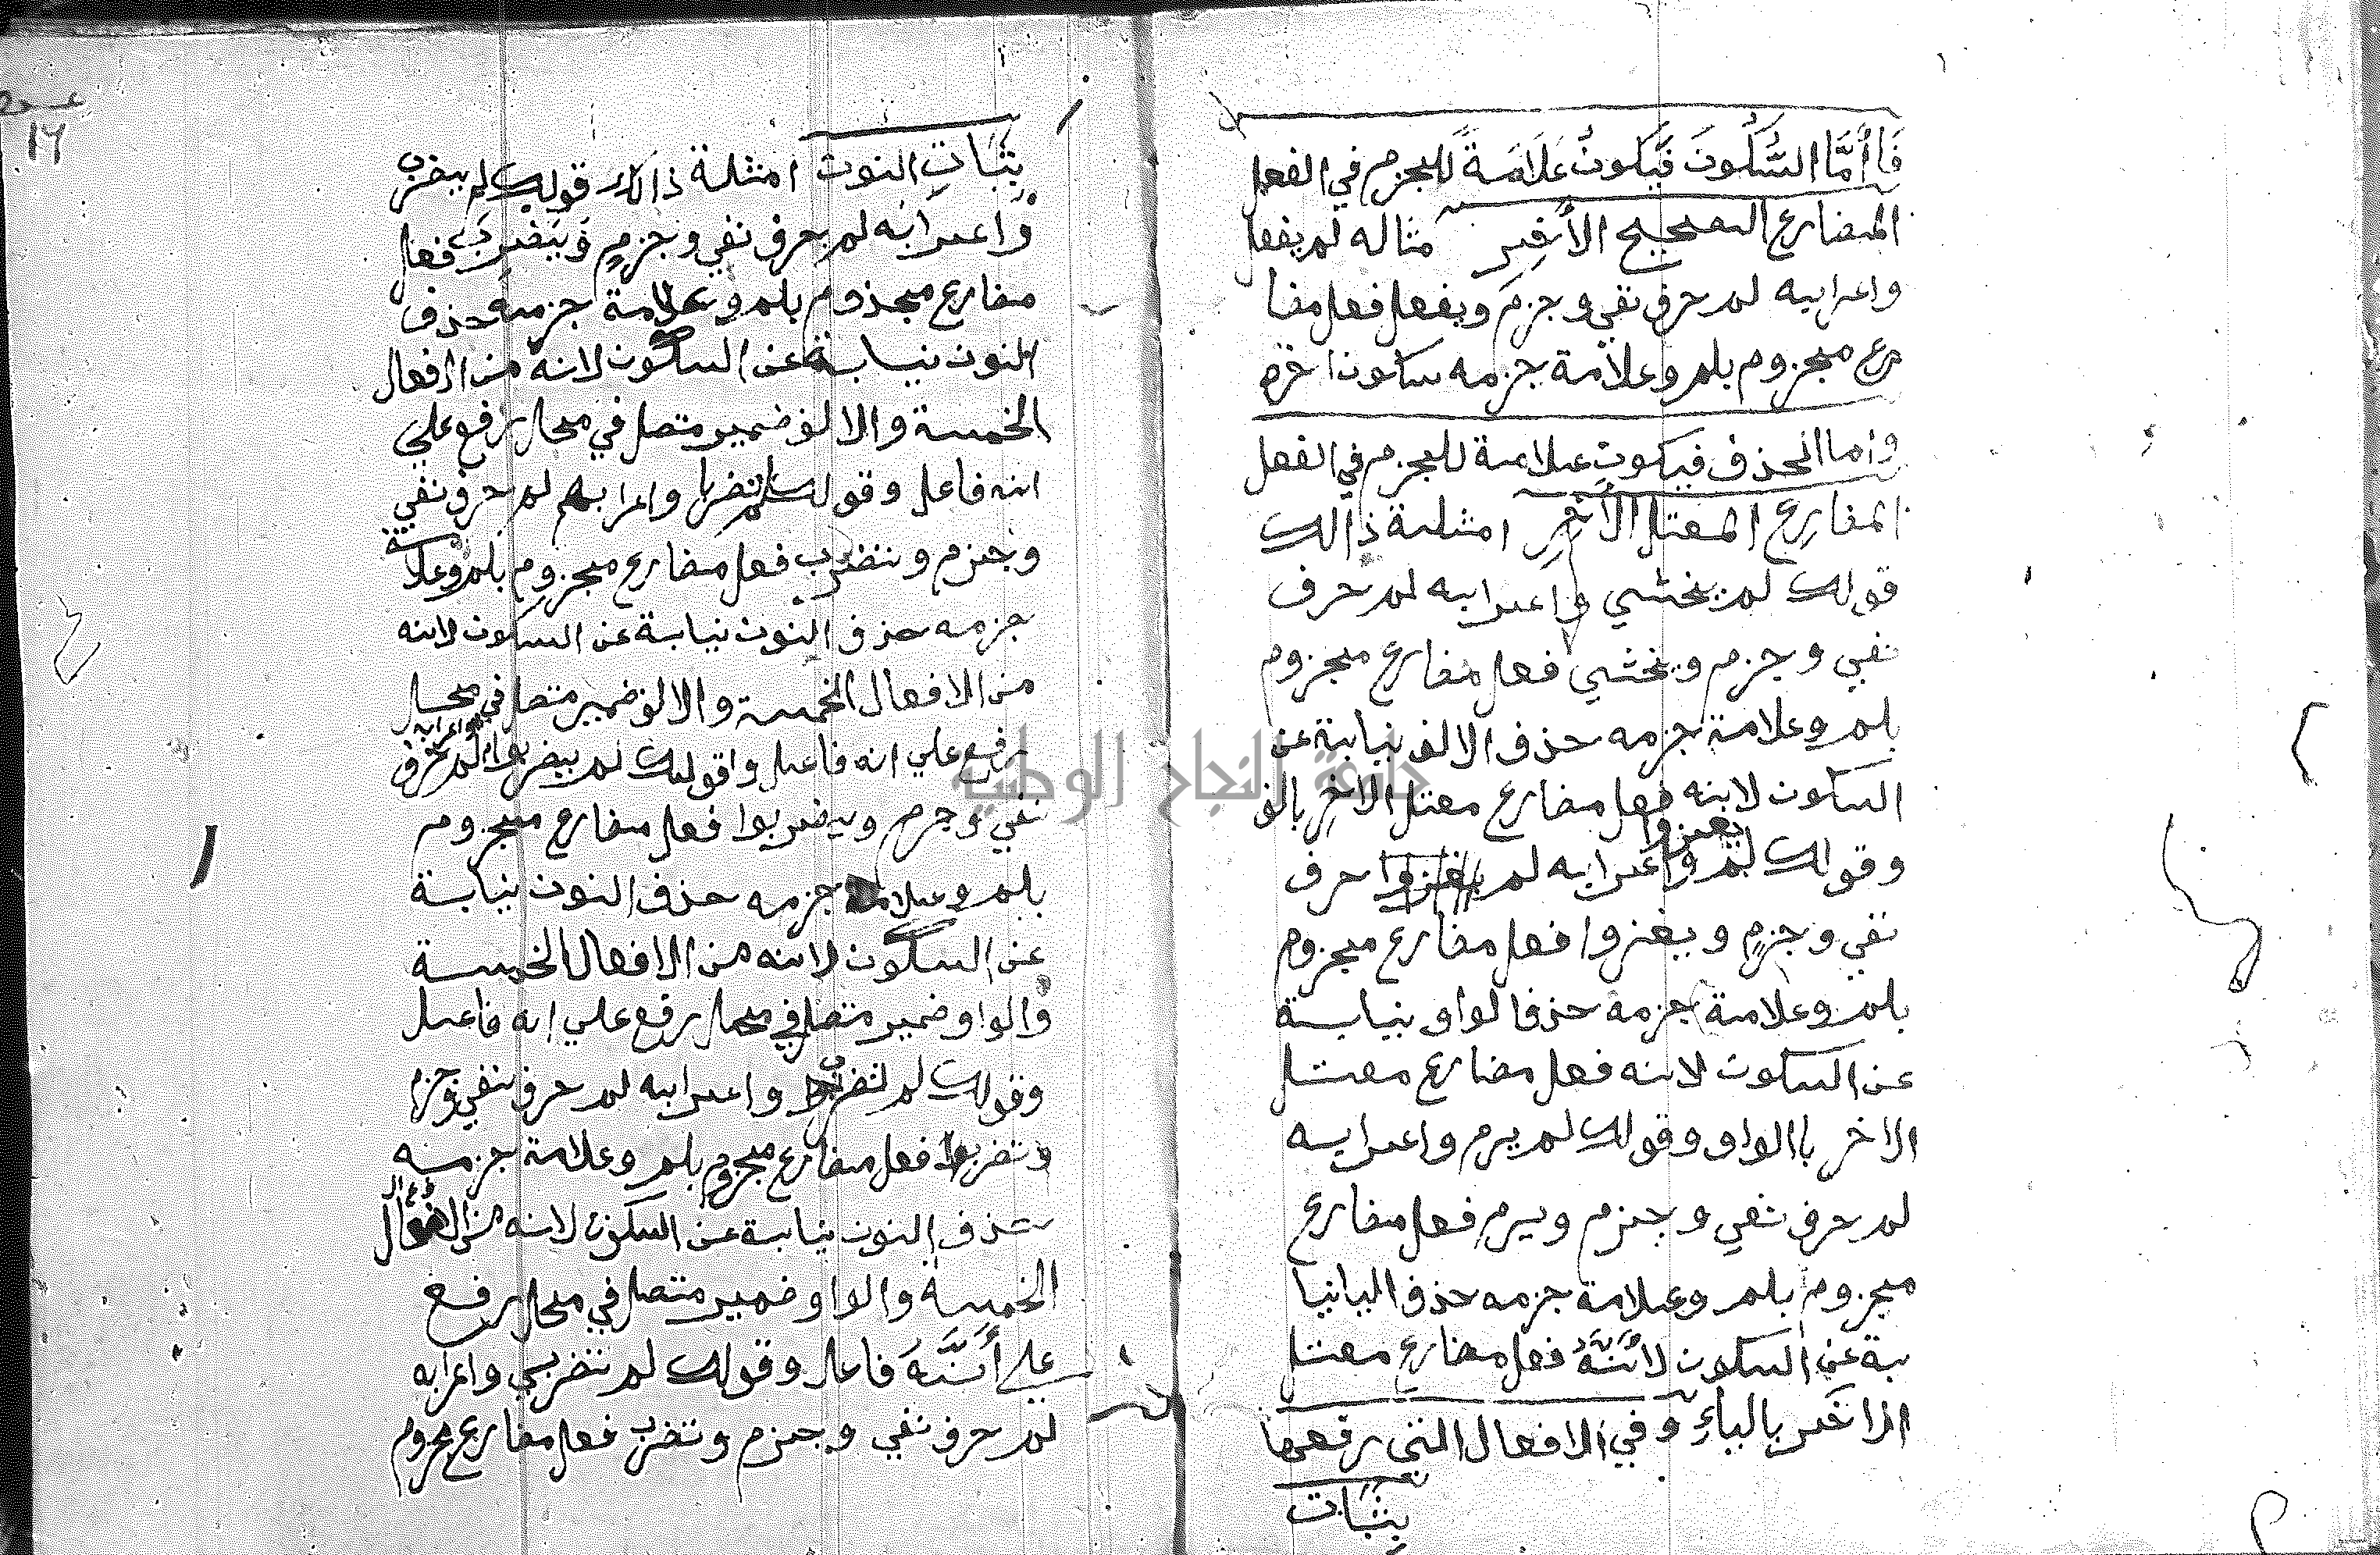 فَاَأمَّا السُّكُونَ فَيَكُونُ عَلَامَةً للجزم في الفعل
المضارع الصحيح الأخِر مثاله لم يفعل
واعرابه لم حرف نفي وجزم ويفعل فعل مضا
رع مجزوم بلم وعلامة جزمه سكون اخره
واما الحذف فيكون علامة للجزم في الفعل
المضارع المعتل الأخِرِ امثلة ذالك
قولك لم يخشي واعرابه لم حرف
نفي وجزم ويخشي فعل مضارع مجزوم
بلم وعلامة جزمه حذف الالف نيابة عن
السكون لانه فعل مضارع معتل الاخِرِ بالف
وقولك لم يغزوا واعرابه لم حرف
نفي وجزمٍ ويغزوا فعل مضارع مجزوم
بلم وعلامة جزمه حذف الواو نيابة
عن السكون لانه فعل مضارع معتل
الاخر باالواو وقولك لم يرم واعرابه
لم حرف نفي وجزم ويرم فعل مضارع
مجزوم بلم وعلامة جزمه حذف اليا نيا
بة عن السكون لأنَّهُ فعل مضارع معتل
الاخر بالياءِ وفي الافعال التي رفعها
بِثَبَات
عدد
١٦
بِثَبَاتِ النون امثلة ذالك قولك لم يضرب
واعرابه لم حرف نفي وجزمٍ وَيَضرب فعل
مضارع مجذوم بلم وعلامة جزمه حذف
النون نيابة عن السكون لانه من الافعال
الخمسة والالف ضمير متصل في محل رفع علي
انه فاعل وقولك لم تضربا واعرابه لم حرف نفي
وجزم وتضرب فعل مضارع مجزوم بلم وعلامة
جزمه حذف النون نيابة عن السكون لانه
من الافعال الخمسة والالف ضمير متصل في محل
رفع علي انه فاعل واقولك لم يضربوا واعرابه لم حرف
نفي وجزم ويضربوا فعل مضارع مجزوم
بلم وعلامة جزمه حذف النون نيابة
عن السكون لانه من الافعال الخمسة
والواو ضمير متصل في محل رفع علي انه فاعل
وقولك لم تضربوا واعرابه لم حرف نفي وجزم
وتضربوا فعل مضارع مجزوم بلم وعلامة جزمه
حذف النون نيابة عن السكون لانه من الافعال
الخمسة والواو ضمير متصل في محل رفع
علي أنَّهَ فاعل وقولك لم تضربي واعرابه
لم حرف نفي وجزم وتضرب فعل مضارع مجزوم
جامعة النجاح الوطنية